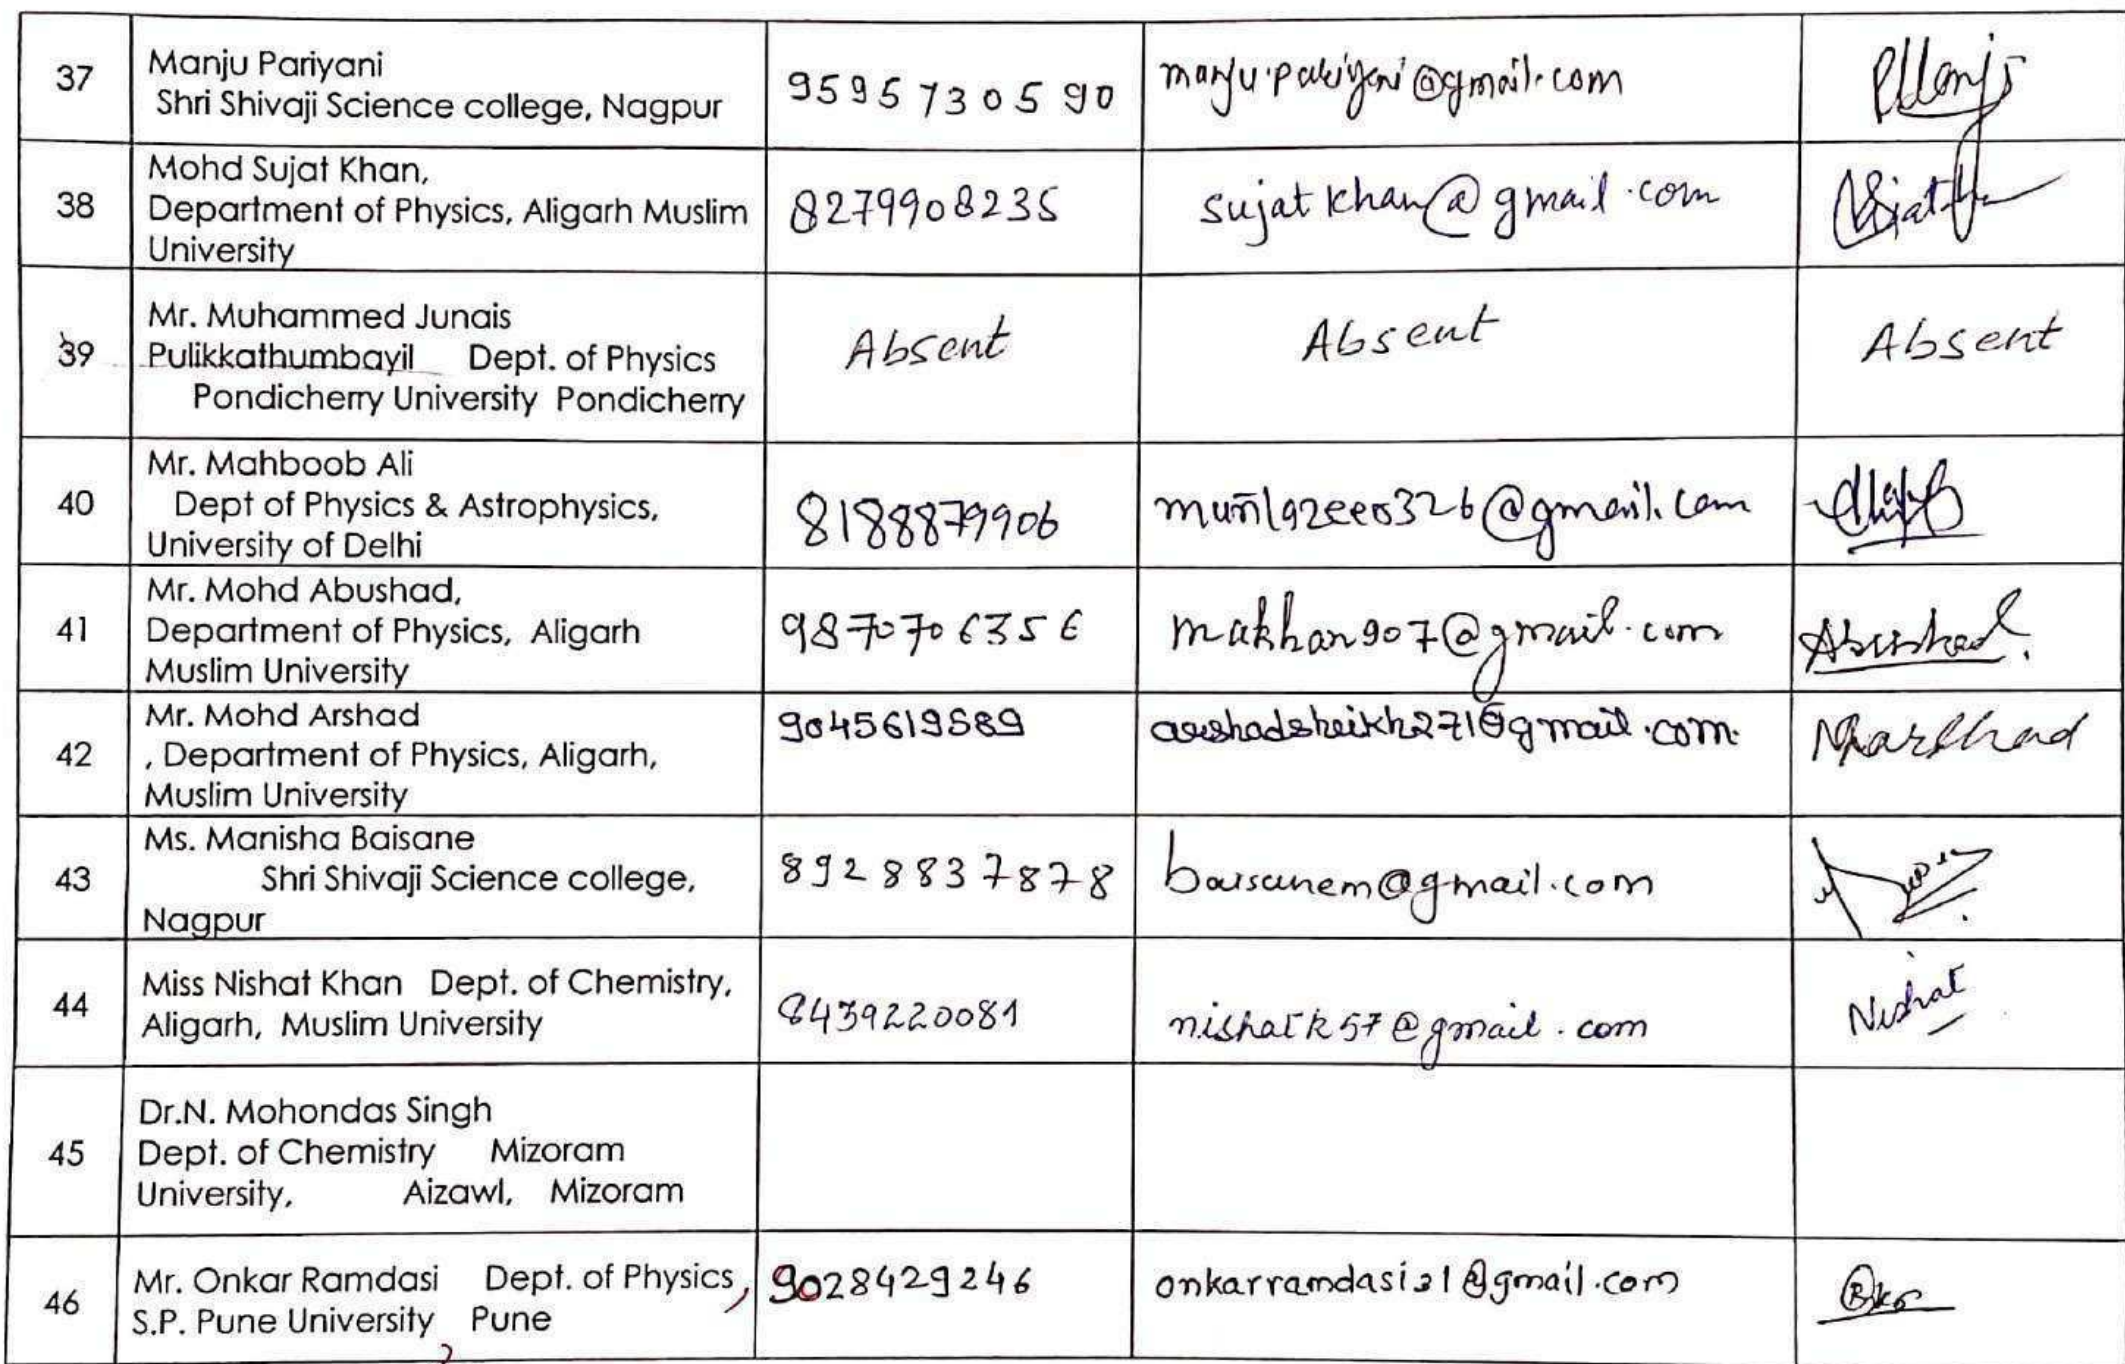 37
Manju Pariyani
Shri Shivaji Science college, Nagpur
9595730590
manju.pariyani@gmail.com
38
Mohd Sujat Khan,
Department of Physics, Aligarh Muslim
University
8279908235
sujatkhan@gmail.com
39
Mr. Muhammed Junais
Pulikkathumbayil Dept. of Physics
Pondicherry University Pondicherry
Absent
Absent
Absent
40
Mr. Mahboob Ali
Dept of Physics & Astrophysics,
University of Delhi
8188879906
41
Mr. Mohd Abushad,
Department of Physics, Aligarh
Muslim University
9870706356
makhan907@gmail.com
Abushad.
42
Mr. Mohd Arshad
, Department of Physics, Aligarh,
Muslim University
9045619589
arshadsheikh271@gmail.com.
43
Ms. Manisha Baisane
Shri Shivaji Science college,
Nagpur
8928837878
baisanem@gmail.com
44
Miss Nishat Khan Dept. of Chemistry,
Aligarh, Muslim University
8439220081
nishatk57@gmail.com
Nishat
45
Dr.N. Mohondas Singh
Dept. of Chemistry Mizoram
University, Aizawl, Mizoram
46
Mr. Onkar Ramdasi Dept. of Physics,
S.P. Pune University, Pune
9028429246
onkarramdasi31@gmail.com